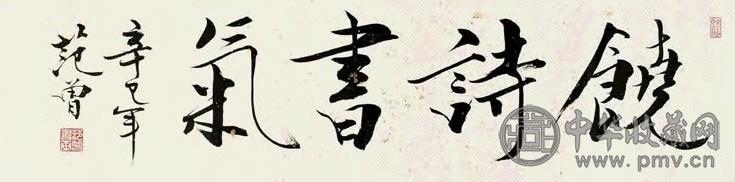 饒詩書氣
辛巳年
范曾
中华收藏网
www.pmv.cn